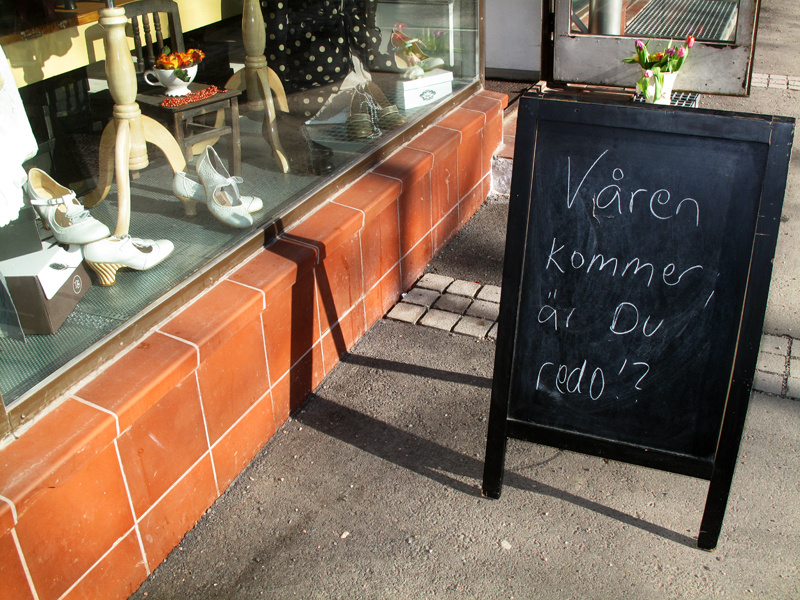 Våren
kommer,
är Du
redo'?